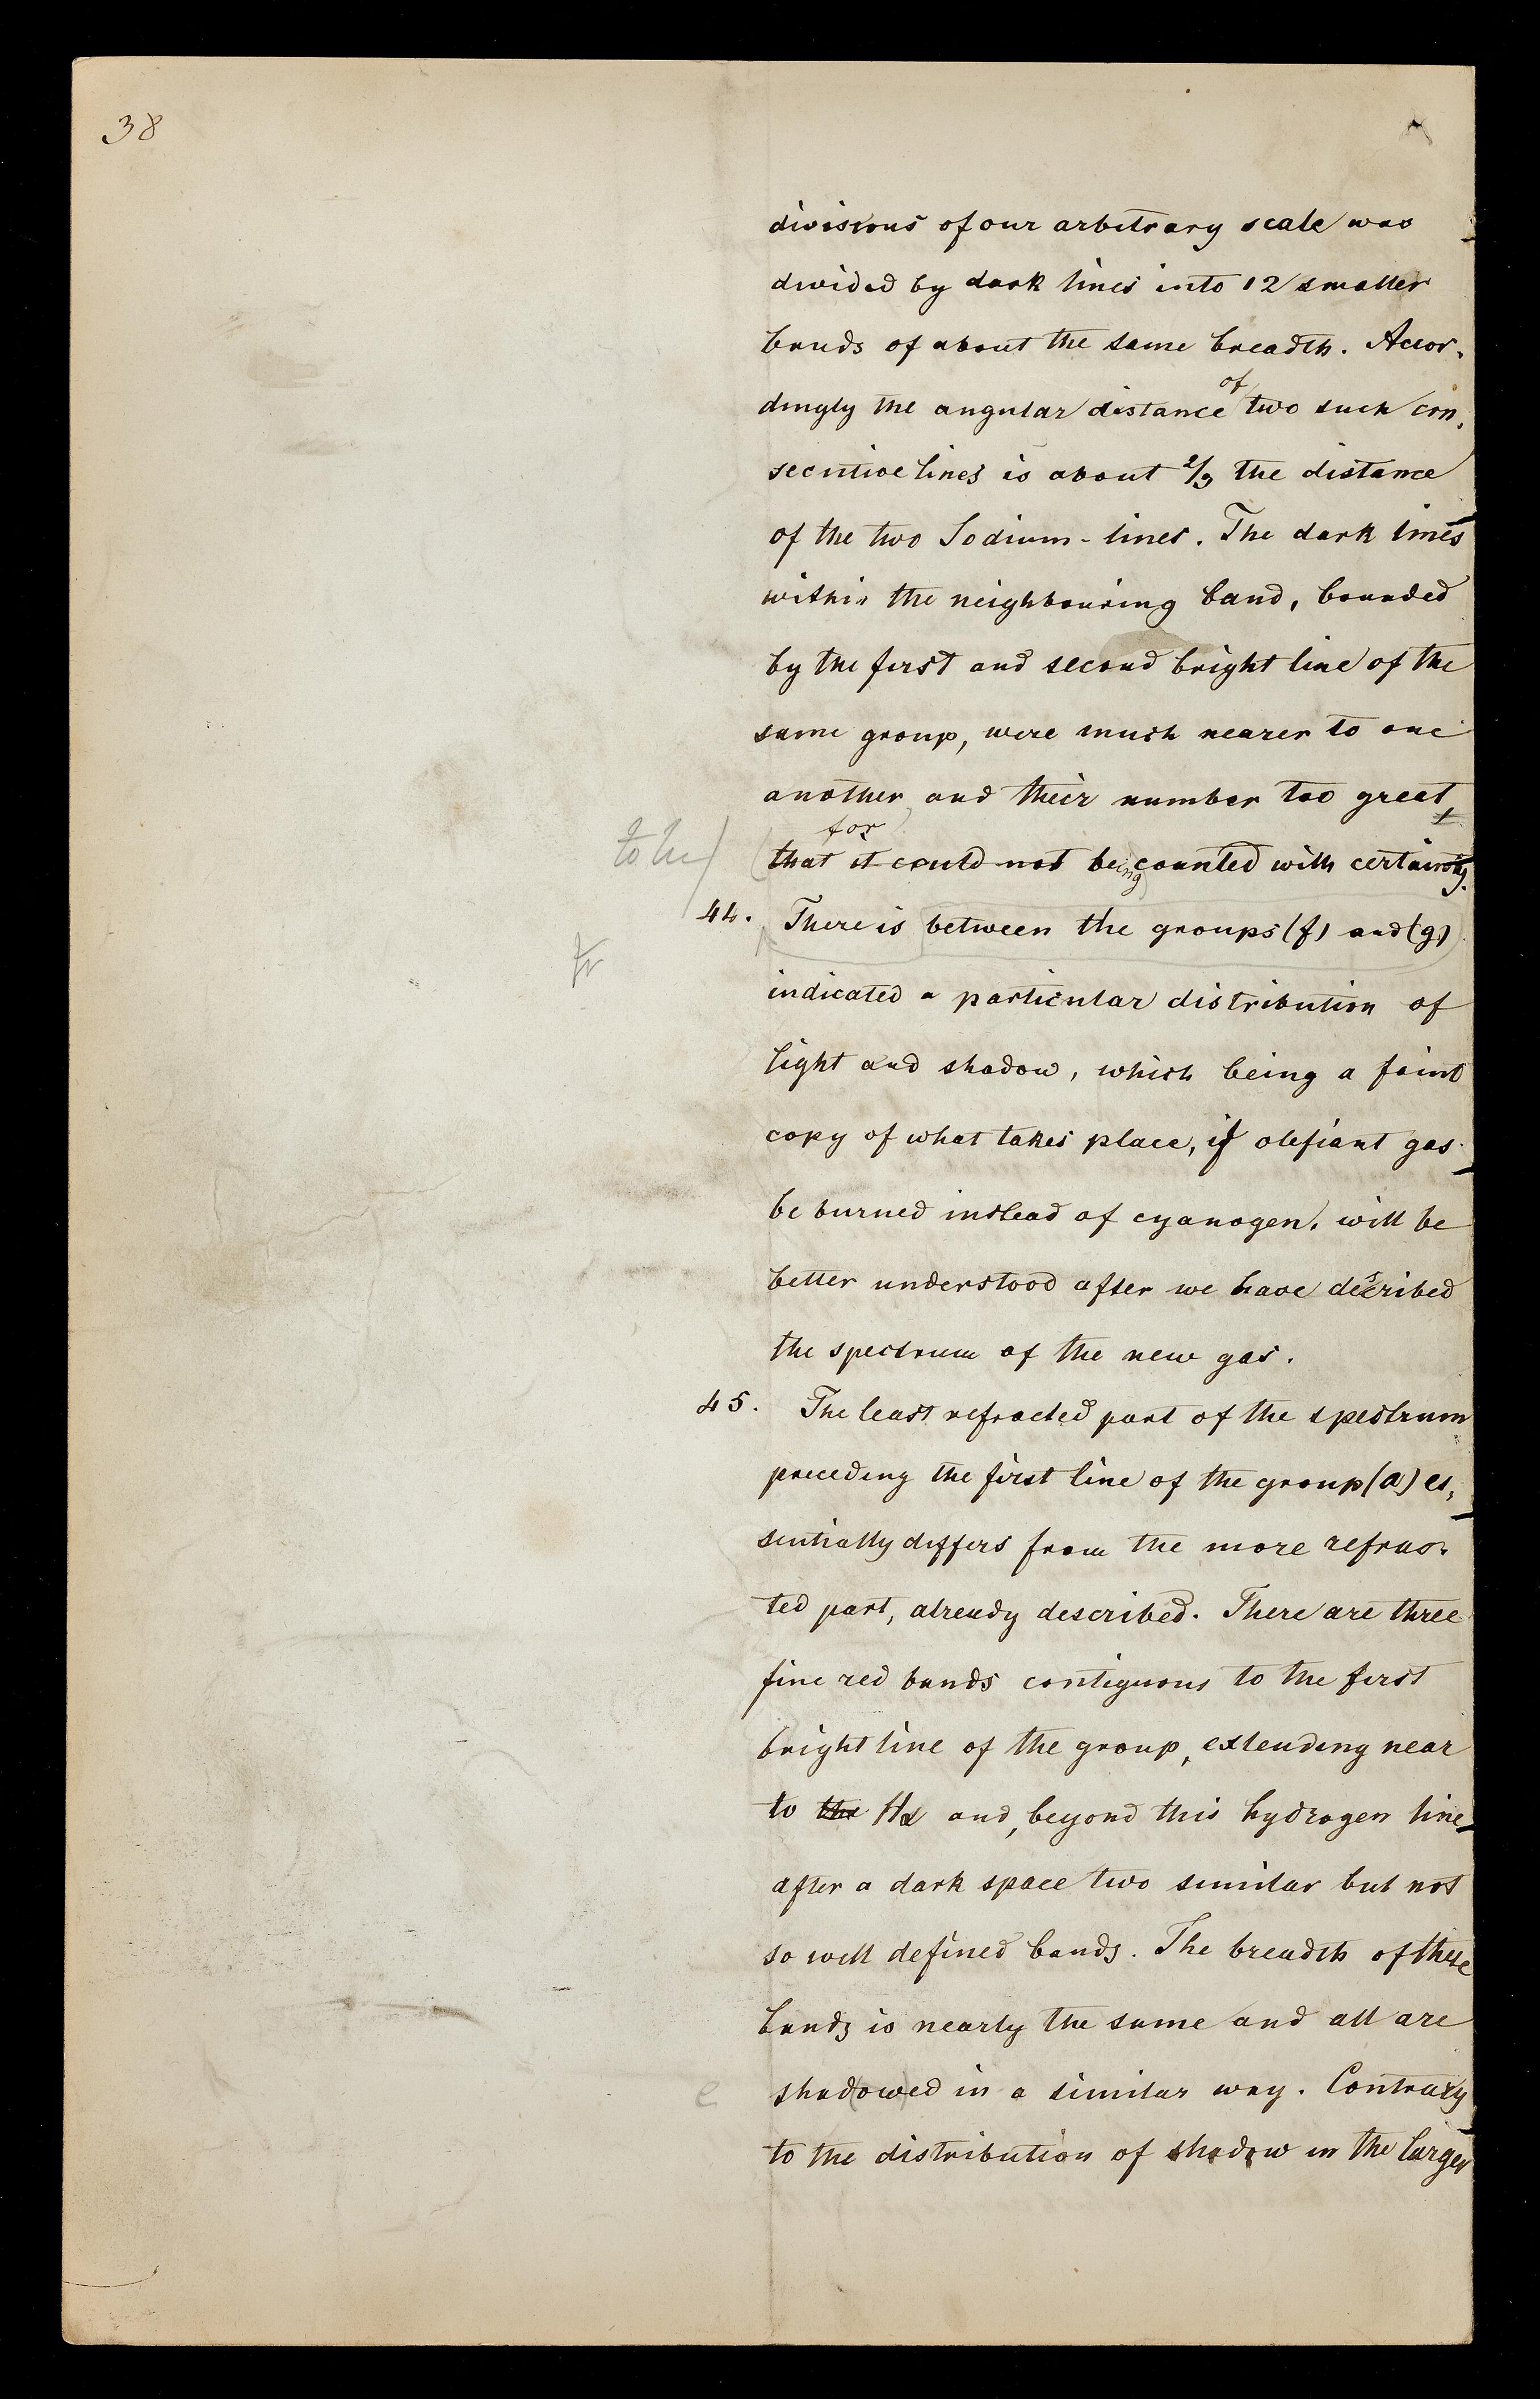 38
divisions of our arbitrary scale was
divided by dark lines into 12 smaller
bands of about the same breadth. Accor-
dingly the angular distance of two such con-
secutive lines is about 2/3 the distance
of the two Sodium-lines. The dark lines
within the neighbouring band, bounded
by the first and second bright line of the
same group, were much nearer to one
another, and their number too great,
to be
for
that it could not being counted with certainty.
44. There is between the groups (f) and (g)
tr
indicated a particular distribution of
light and shadow, which being a faint
copy of what takes place, if olefiant gas
be burned instead of cyanogen, will be
better understood after we have described
the spectrum of the new gas.
45. The least refracted part of the spectrum
preceding the first line of the group (a) es-
sentially differs from the more refrac-
ted part, already described. There are three
fine red bands contiguous to the first
bright line of the group, extending near
to the Hα and, beyond this hydrogen line,
after a dark space two similar but not
so well defined bands. The breadth of these
bands is nearly the same and all are
e shadowed in a similar way. Contrary
to the distribution of shadow in the larger